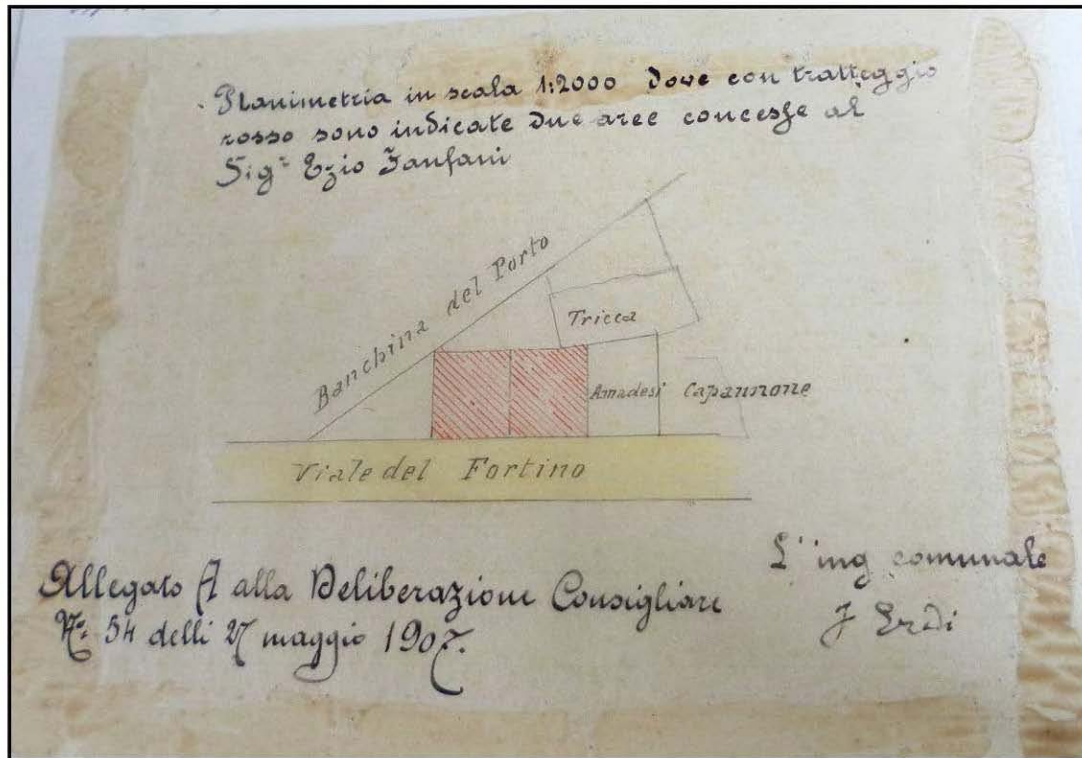 Planimetria in scala 1:2000 dove con tratteggio
rosso sono indicate due aree concesse al
Sig.r Ezio Fanfani
Banchina del Porto
Tricca
Amadesi
Capannone
Viale del Fortino
L'ing comunale
Allegato A alla Deliberazione Consigliare
N.° 54 delli 27 maggio 1907.